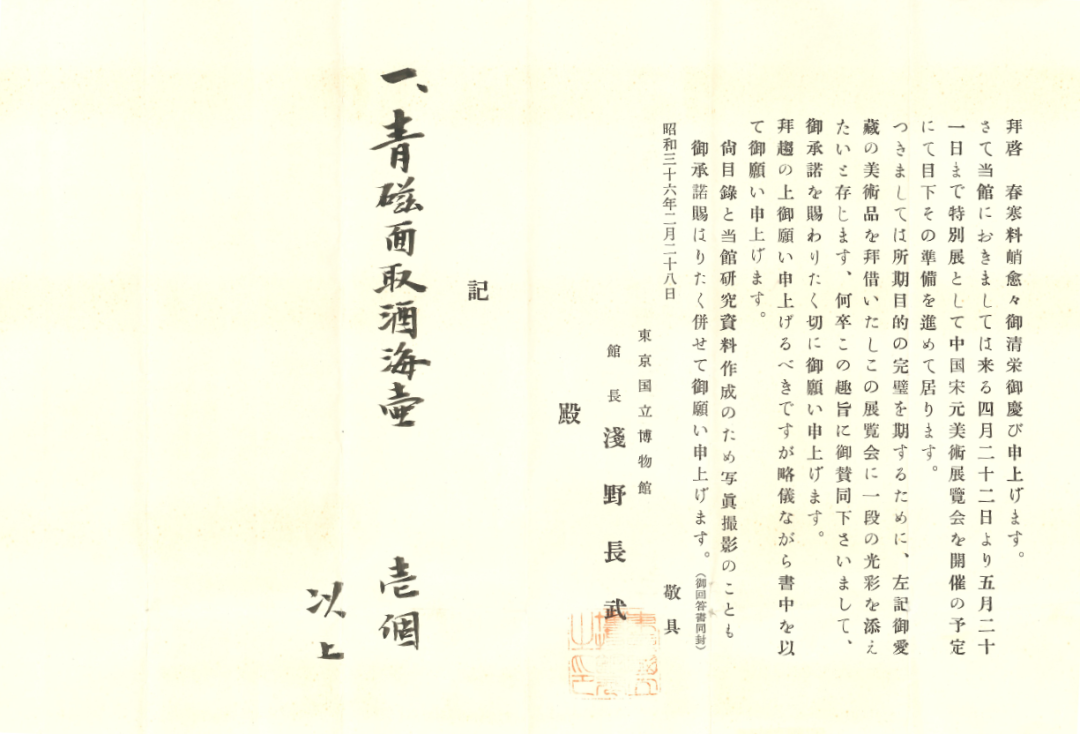 拝啓　春寒料峭愈々御清栄御慶び申上げます。
さて当館におきましては来る四月二十二日より五月二十
一日まで特別展として中国宋元美術展覧会を開催の予定
にて目下その準備を進めて居ります。
つきましては所期目的の完璧を期するために、左記御愛
蔵の美術品を拝借いたしこの展覧会に一段の光彩を添え
たいと存じます、何卒この趣旨に御賛同下さいまして、
御承諾を賜わりたく切に御願い申上げます。
拝趨の上御願い申上げるべきですが略儀ながら書中を以
て御願い申上げます。
尙目錄と当館研究資料作成のため写眞撮影のことも
御承諾賜はりたく併せて御願い申上げます。（御回答書同封）
敬具
昭和三十六年二月二十八日
東京国立博物館
館長　淺野長武
殿
記
一、青磁面取酒海壷　壱個
以上